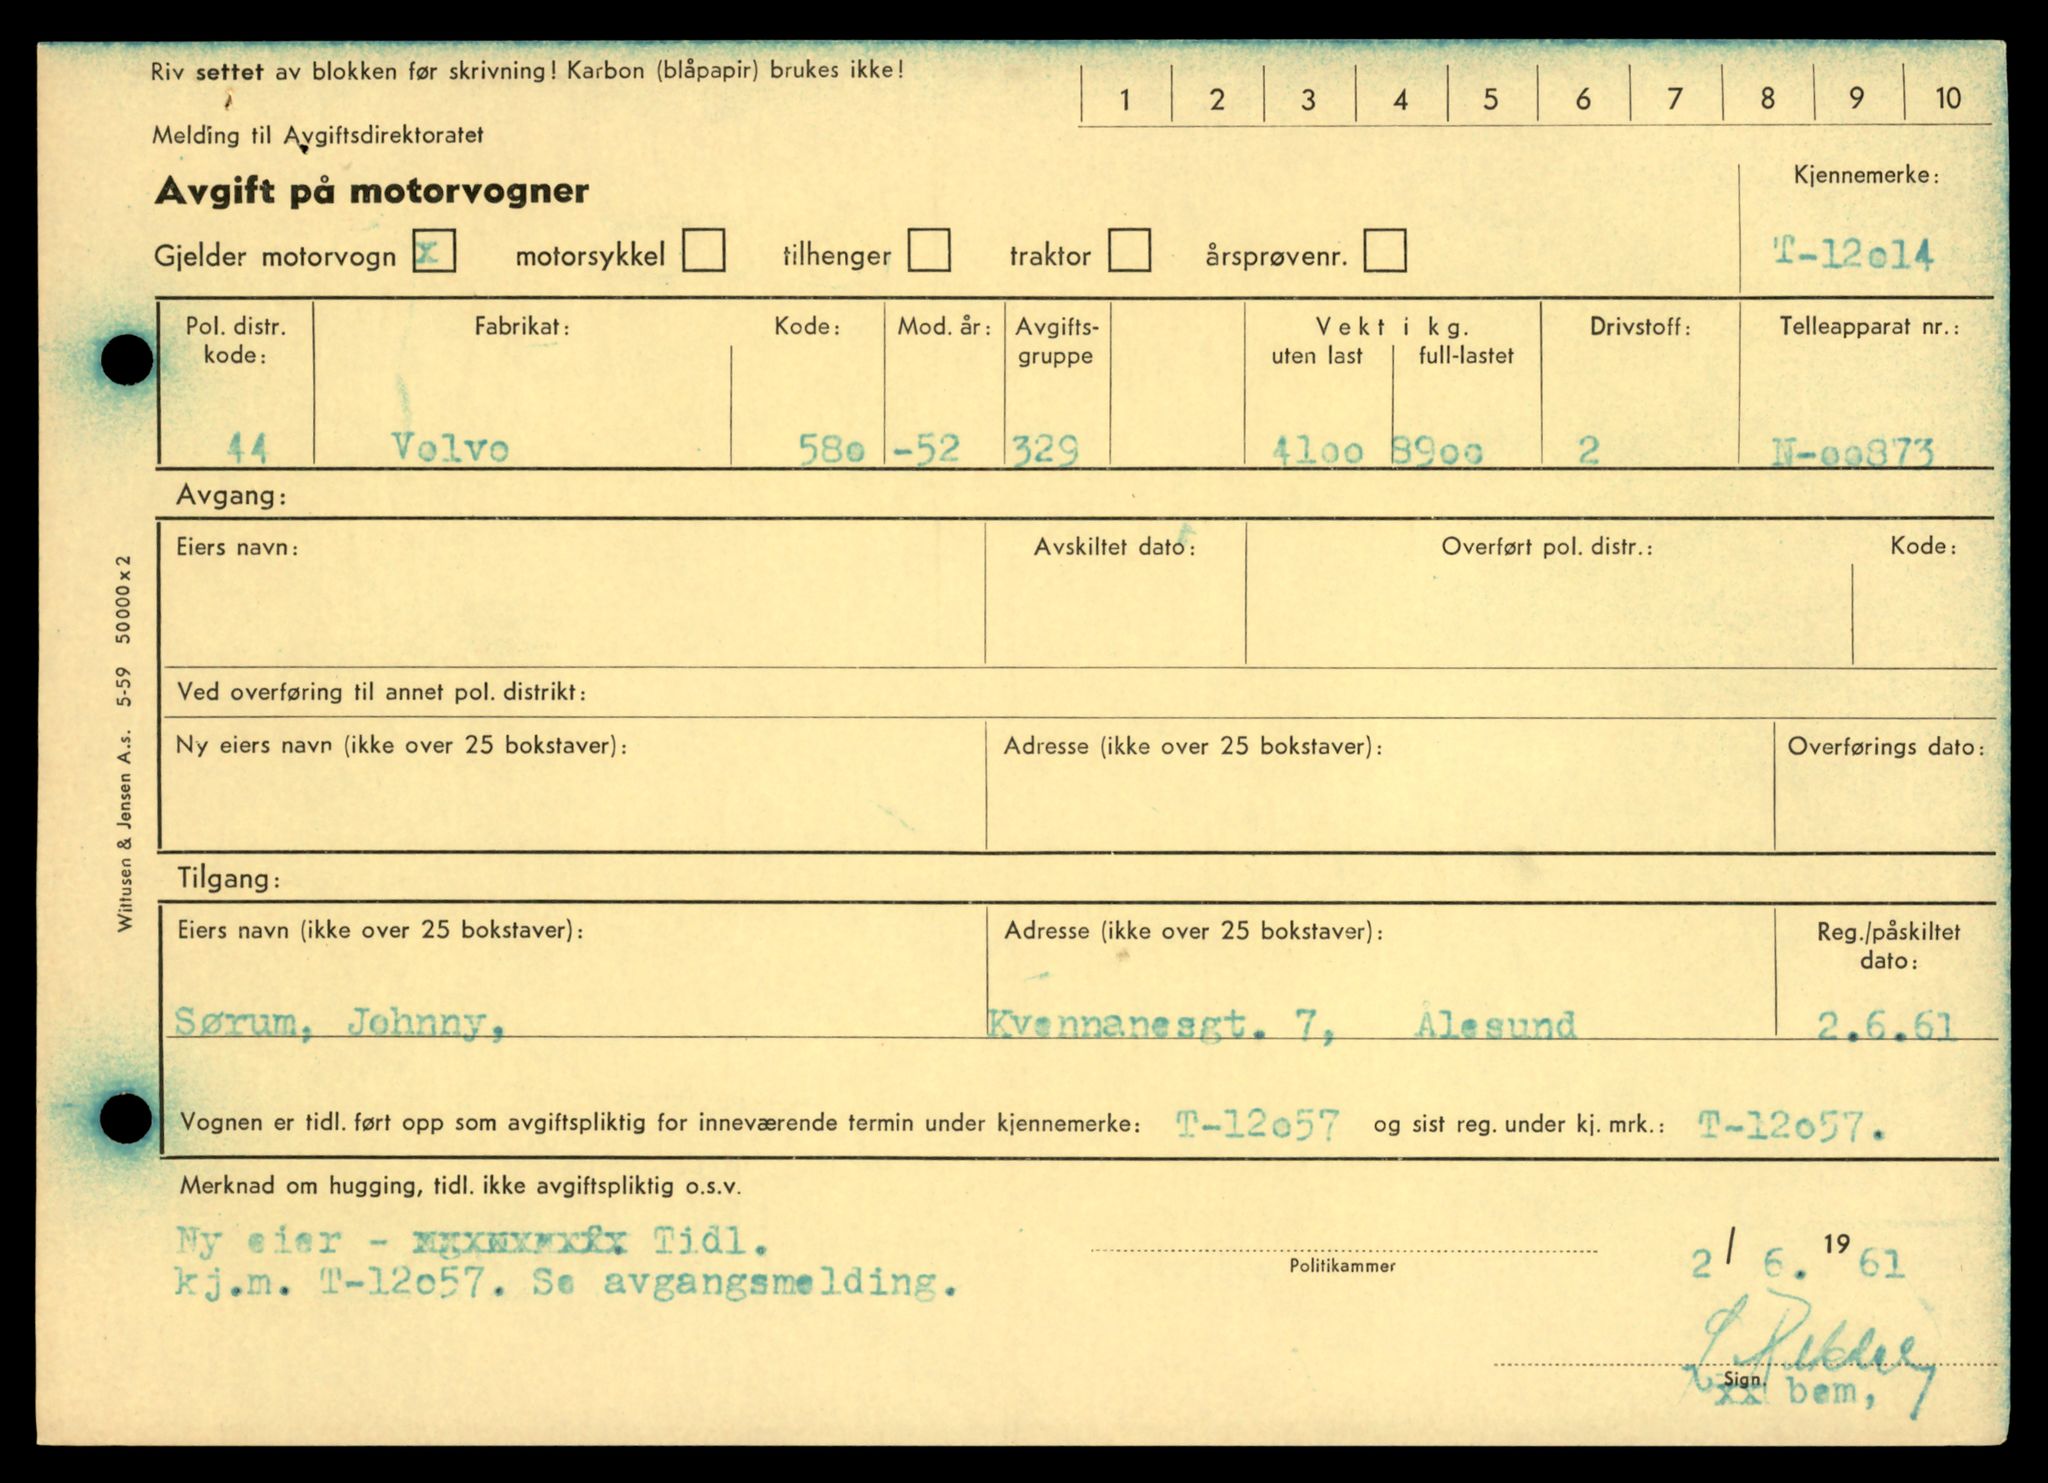 Riv settet av blokken før skrivning! Karbon (blåpapir) brukes ikke!
1 2 3 4 5 6 7 8 9 10
Melding til Avgiftsdirektoratet
Avgift på motorvogner
Kjennemerke:
Gjelder motorvogn x motorsykkel tilhenger traktor årsprøvenr.
T-12o14
Pol. distr. kode:
Fabrikat:
Kode:
Mod. år:
Avgifts-gruppe
Vekt i kg.
uten last full-lastet
Drivstoff:
Telleapparat nr.:
44 Volvo 58o -52 329 41oo 89oo 2 N-oo873
Avgang:
Eiers navn: Avskiltet dato: Overført pol. distr.: Kode:
Ved overføring til annet pol. distrikt:
Ny eiers navn (ikke over 25 bokstaver): Adresse (ikke over 25 bokstaver): Overførings dato:
Tilgang:
Eiers navn (ikke over 25 bokstaver): Adresse (ikke over 25 bokstaver): Reg./påskiltet
dato:
Sørum, Johnny, Kvennanesgt. 7, Ålesund 2.6.61
Vognen er tidl. ført opp som avgiftspliktig for inneværende termin under kjennemerke: T-12o57 og sist reg. under kj. mrk.: T-12o57.
Merknad om hugging, tidl. ikke avgiftspliktig o.s.v.
Ny eier - Tidl.
kj.m. T-12o57. Se avgangsmelding.
Politikammer
2/ 6. 19 61
Sign.
xx bem,
Wittusen & Jensen A.s. 5-59 50000 x 2